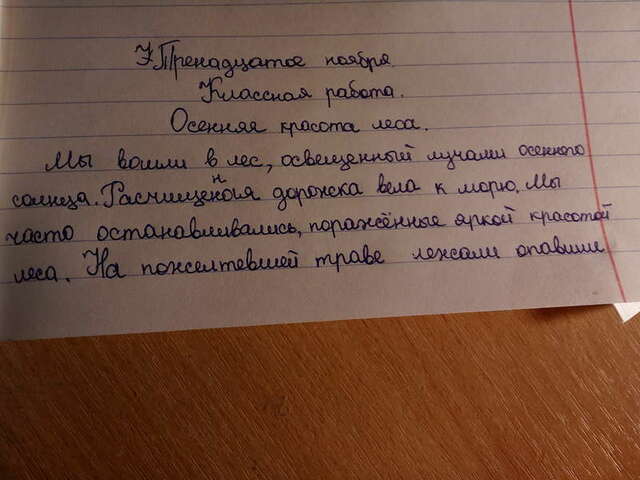 Тринадцатое ноября.
Классная работа.
Осенняя красота леса.
Мы вошли в лес, освещенный лучами осеннего
солнца. Расчищенная дорожка вела к морю. Мы
часто останавливались, поражённые яркой красотой
леса. На пожелтевшей траве лежали опавшие